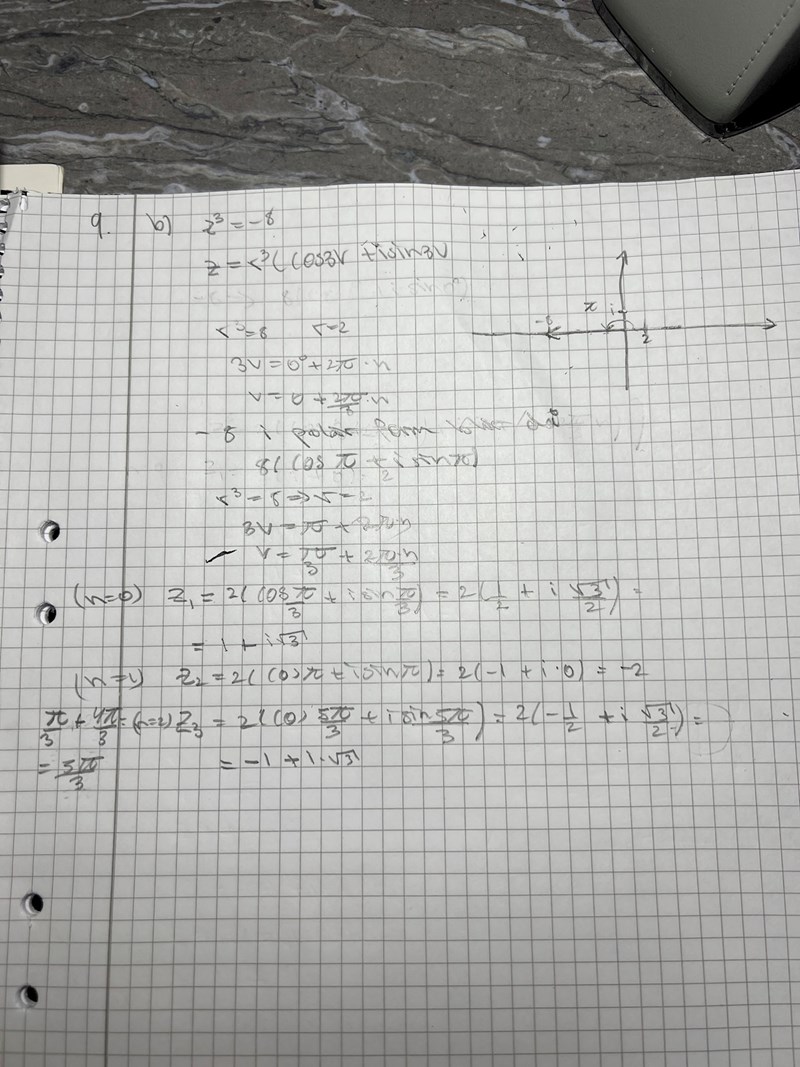 9. b) z³ = -8
z = r³(cos3v + isin3v
r³=8 r=2
3v = 0° + 2π·n
v = 0 + 2π/3·n
-8 i polär form
8(cos π + i sinπ)
r³ = 8 => r = 2
3v = π + 2π·n
v = π/3 + 2π·n/3
(n=0) z₁ = 2(cos π/3 + i sin π/3) = 2(1/2 + i √3/2) =
= 1 + i√3
(n=1) z₂ = 2(cos π + i sin π) = 2(-1 + i·0) = -2
π/3 + 4π/3 = (n=2) z₃ = 2(cos 5π/3 + i sin 5π/3) = 2(-1/2 + i √3/2) =
= 5π/3 = -1 + i·√3
-8 π i
2